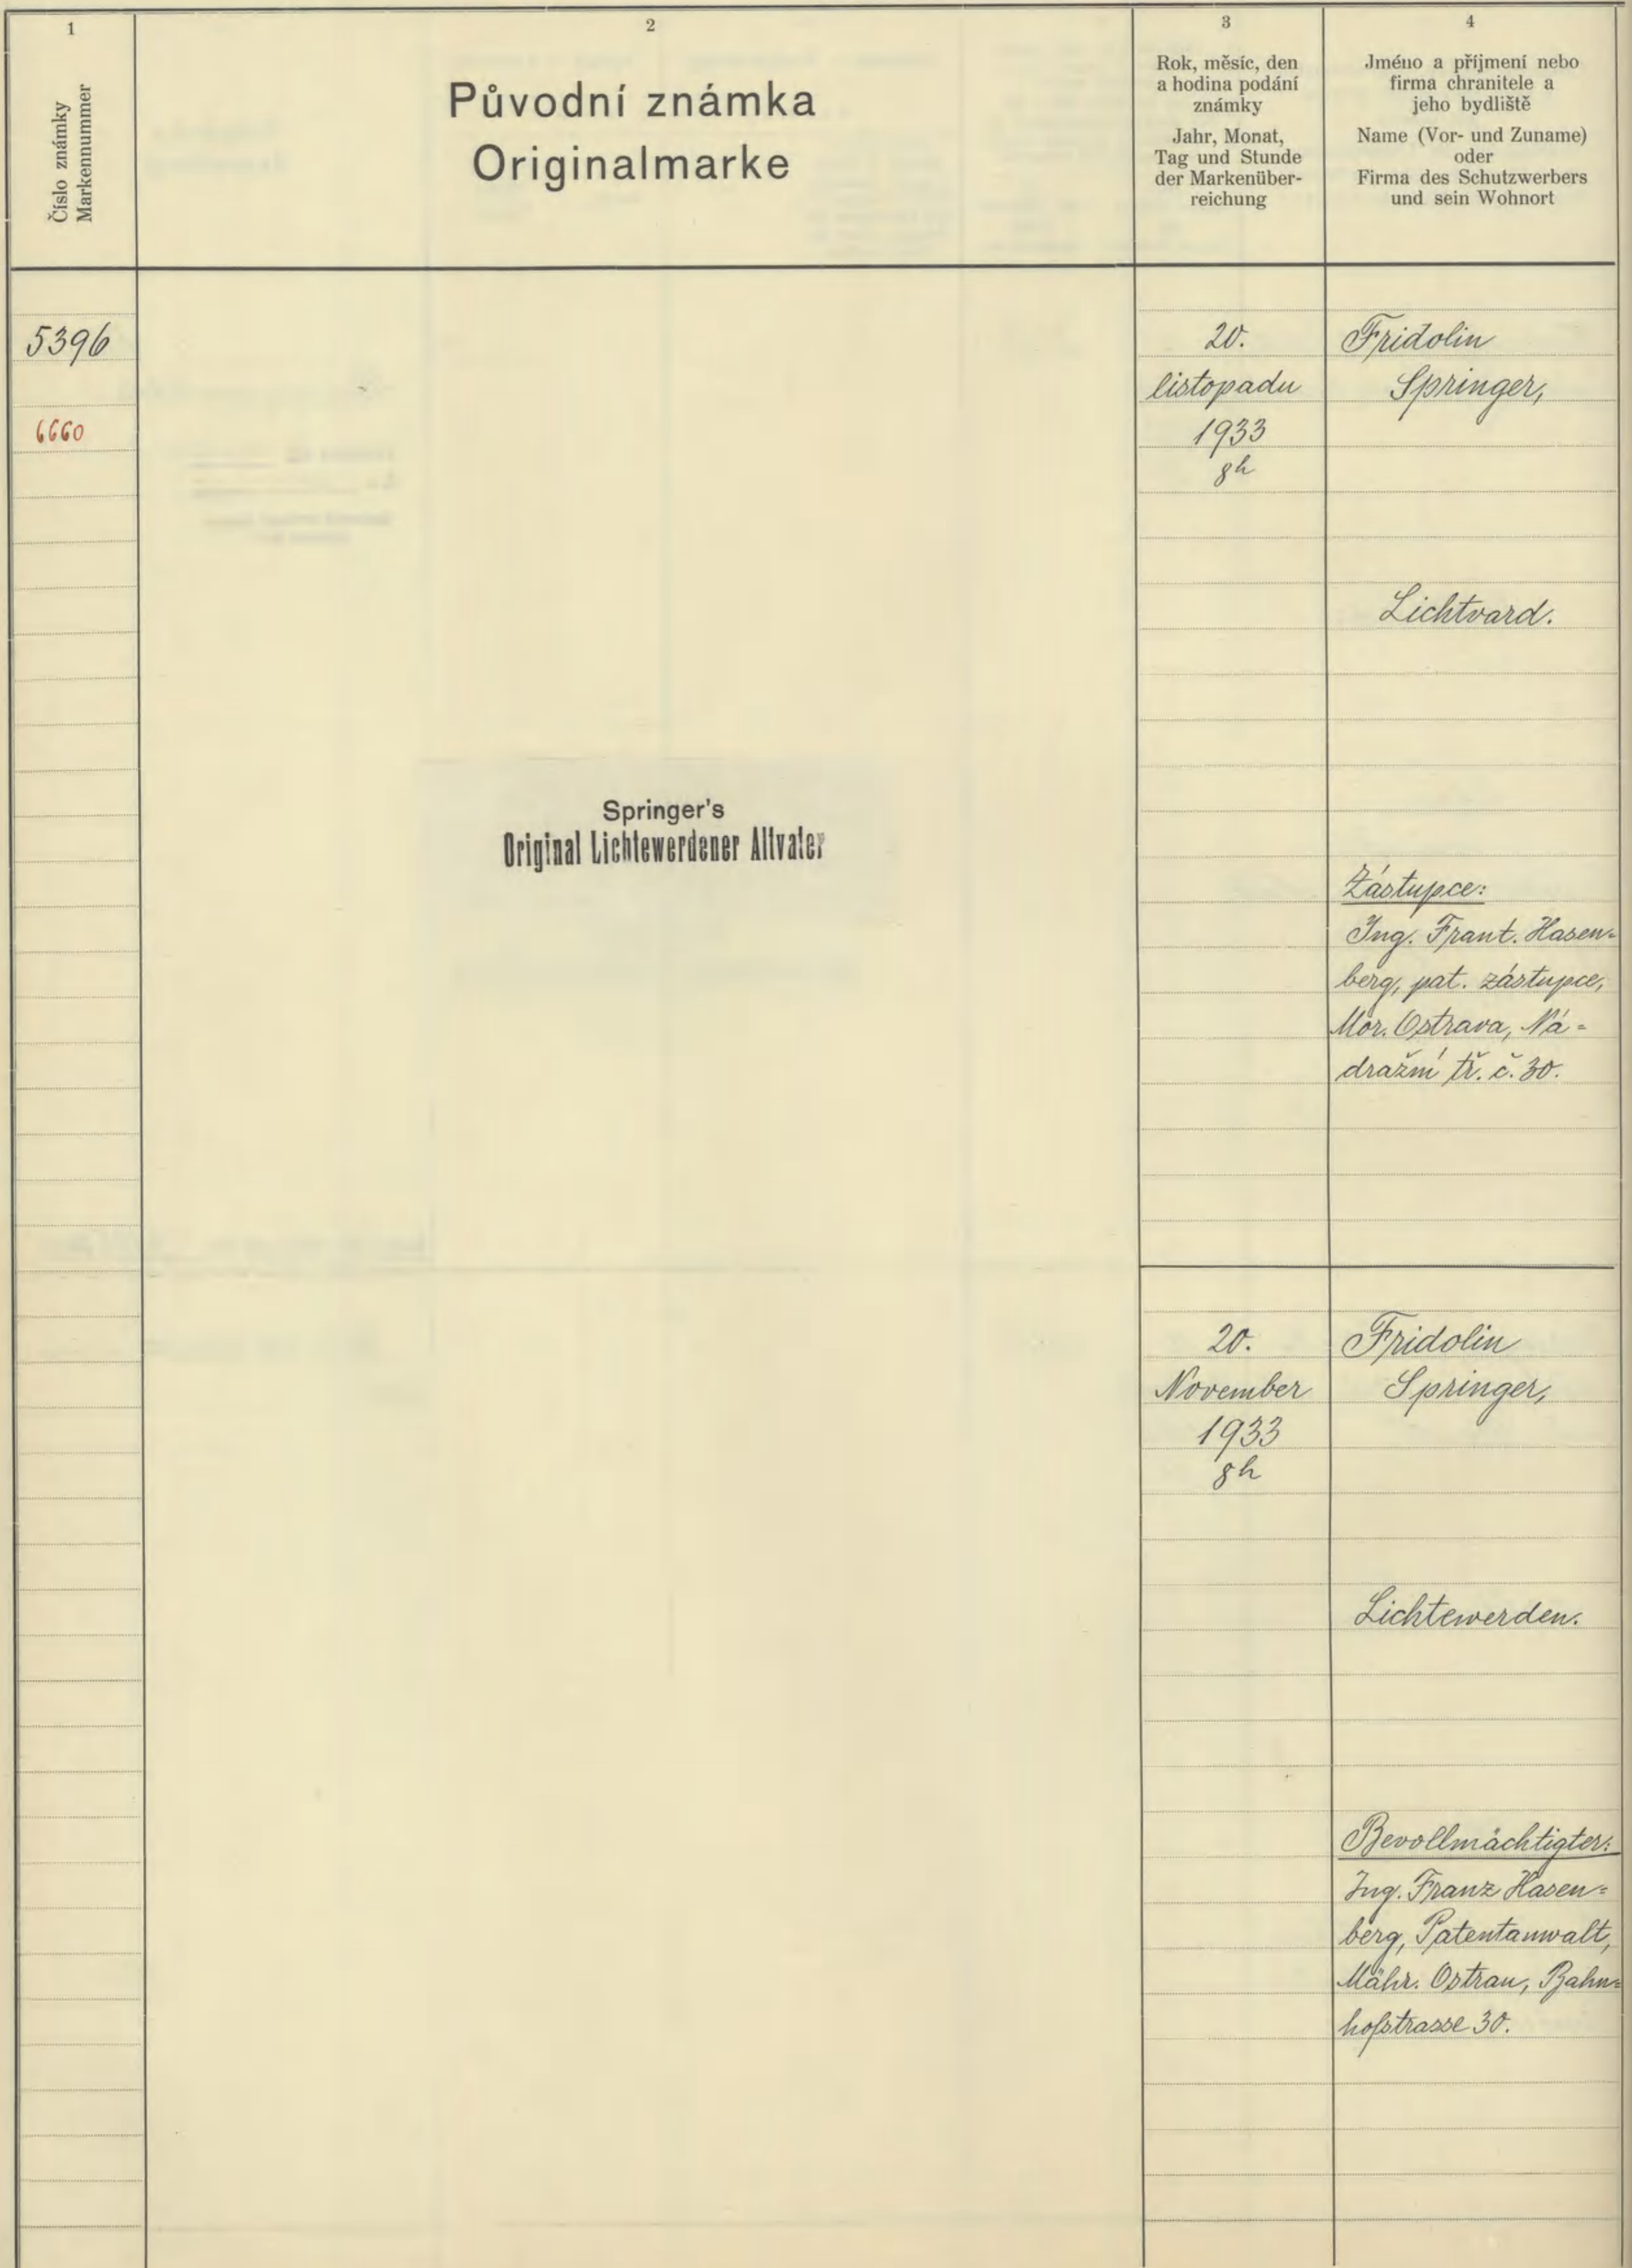 1
Číslo známky
Markennummer
2
Původní známka
Originalmarke
3
Rok, měsíc, den
a hodina podání
známky
Jahr, Monat,
Tag und Stunde
der Markenüber-
reichung
4
Jméno a příjmení nebo
firma chranitele a
jeho bydliště
Name (Vor- und Zuname)
oder
Firma des Schutzwerbers
und sein Wohnort
5396
6660
Springer's
Original Lichtewerdener Altvater
20.
listopadu
1933
8h
Fridolin
Springer,
Lichtvard.
Zástupce:
Ing. Frant. Hasen-
berg, pat. zástupce,
Mor. Ostrava, Ná-
dražní tř. č. 30.
20.
November
1933
8h
Fridolin
Springer,
Lichtewerden.
Bevollmächtigter:
Ing. Franz Hasen-
berg, Patentanwalt,
Mähr. Ostrau, Bahn-
hofstrasse 30.